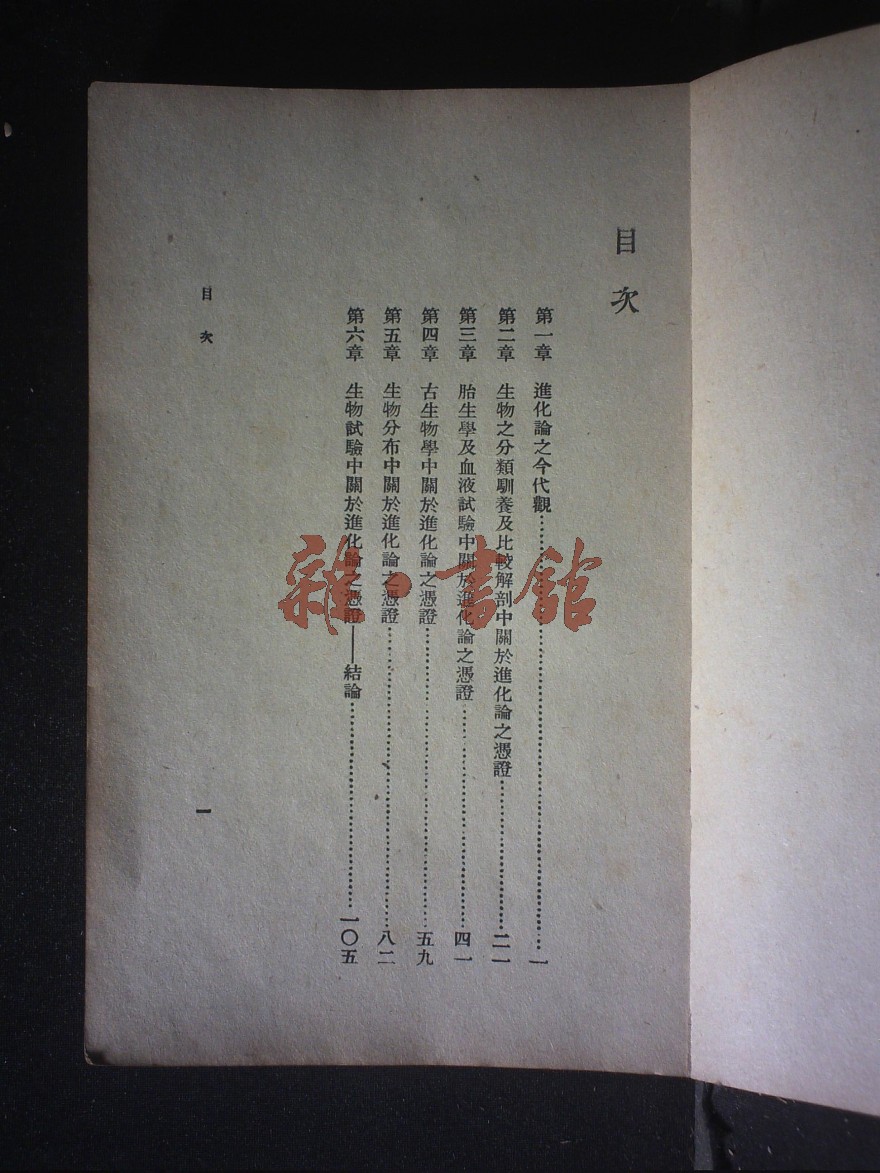 目次
第一章　進化論之今代觀……一
第二章　生物之分類馴養及比較解剖中關於進化論之憑證……二一
第三章　胎生學及血液試驗中關於進化論之憑證……四一
第四章　古生物學中關於進化論之憑證……五九
第五章　生物分布中關於進化論之憑證……八二
第六章　生物試驗中關於進化論之憑證——結論……一〇五
目次
一
雜·書館